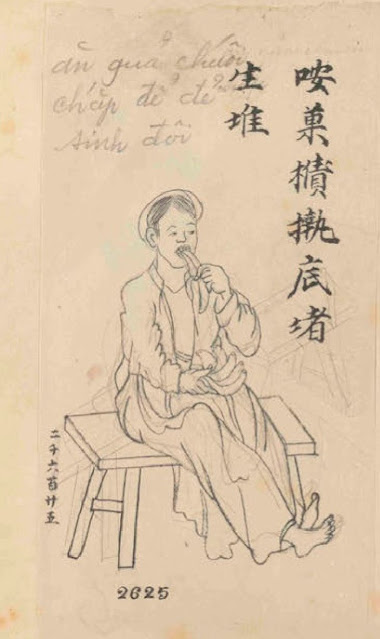 ăn quả chuối
chắp để đẻ
sinh đôi
咹菓櫍執底堵
生堆
二千六百廿五
2625